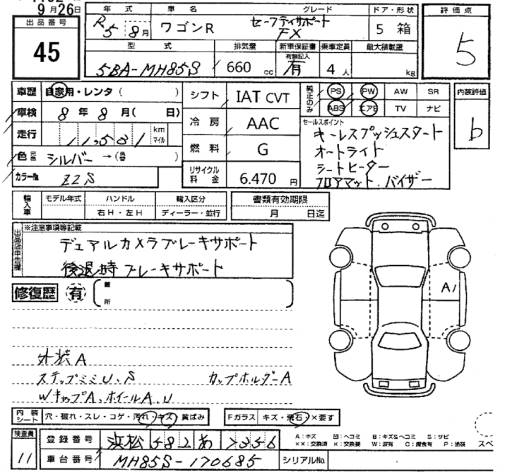 9月26日
出品番号 45
年式 R5年8月 車名 ワゴンR グレード セーフティサポート FX ドア・形状 5 箱
型式 5BA-MH85S 排気量 660 cc 新車保証書 有 乗車定員 4人 最大積載量 kg
評価点 5
車歴 自家用・レンタ( )
車検 8年8月( 日)
走行 11,531 km マイル
色 シルバー→( 番)
カラーNo. Z2S
シフト IAT CVT
冷房 AAC
燃料 G
リサイクル料金 6.470円
純正のみ PS PW AW SR
ABS エアB TV ナビ
内装評価 b
セールスポイント
キーレスプッシュスタート
オートライト
シートヒーター
フロアマット、バイザー
輸入車 モデル年式 ハンドル 右H・左H 輸入区分 ディーラー・並行
書類有効期限 月 日迄
出品店申告欄 ※注意事項等記載
デュアルカメラブレーキサポート
後退時ブレーキサポート
修復歴 有 箇所
A1
小状A
ステップミミU、S カップホルダーA
WキャップA、ホイールA、U
内装シート 穴・破れ・スレ・コゲ・汚れ・キズ・黄ばみ
Fガラス キズ・飛石・×要す
検査員 11
登録番号 浜松 582 あ 7356
車台番号 MH85S-170685 シリアルNo.